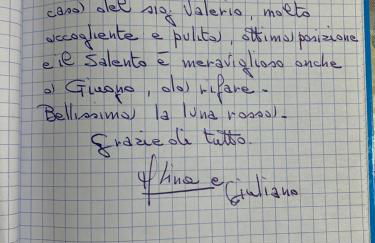 casa del sig. Valerio, molto
accogliente e pulita, ottima posizione
e il Salento è meraviglioso anche
a Giugno, da rifare.
Bellissima la luna rossa.
Grazie di tutto.
e
Giuliano